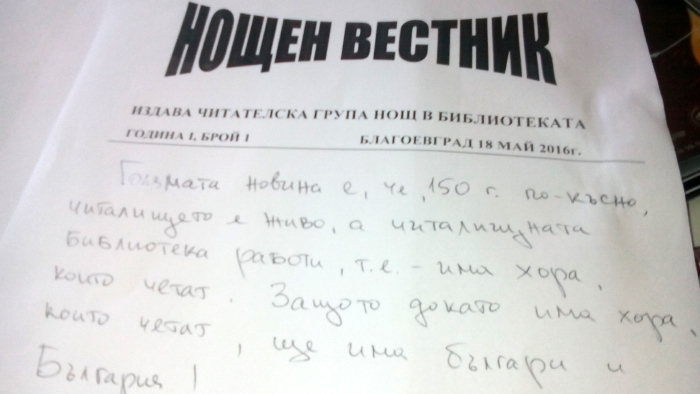 НОЩЕН ВЕСТНИК
ИЗДАВА ЧИТАТЕЛСКА ГРУПА НОЩ В БИБЛИОТЕКАТА
ГОДИНА I, БРОЙ 1 БЛАГОЕВГРАД 18 МАЙ 2016г.
Голямата новина е, че, 150 г. по-късно,
читалището е живо, а читалищната
библиотека работи, т.е. - има хора,
които четат. Защото докато има хора,
които четат, ще има българи и
България!